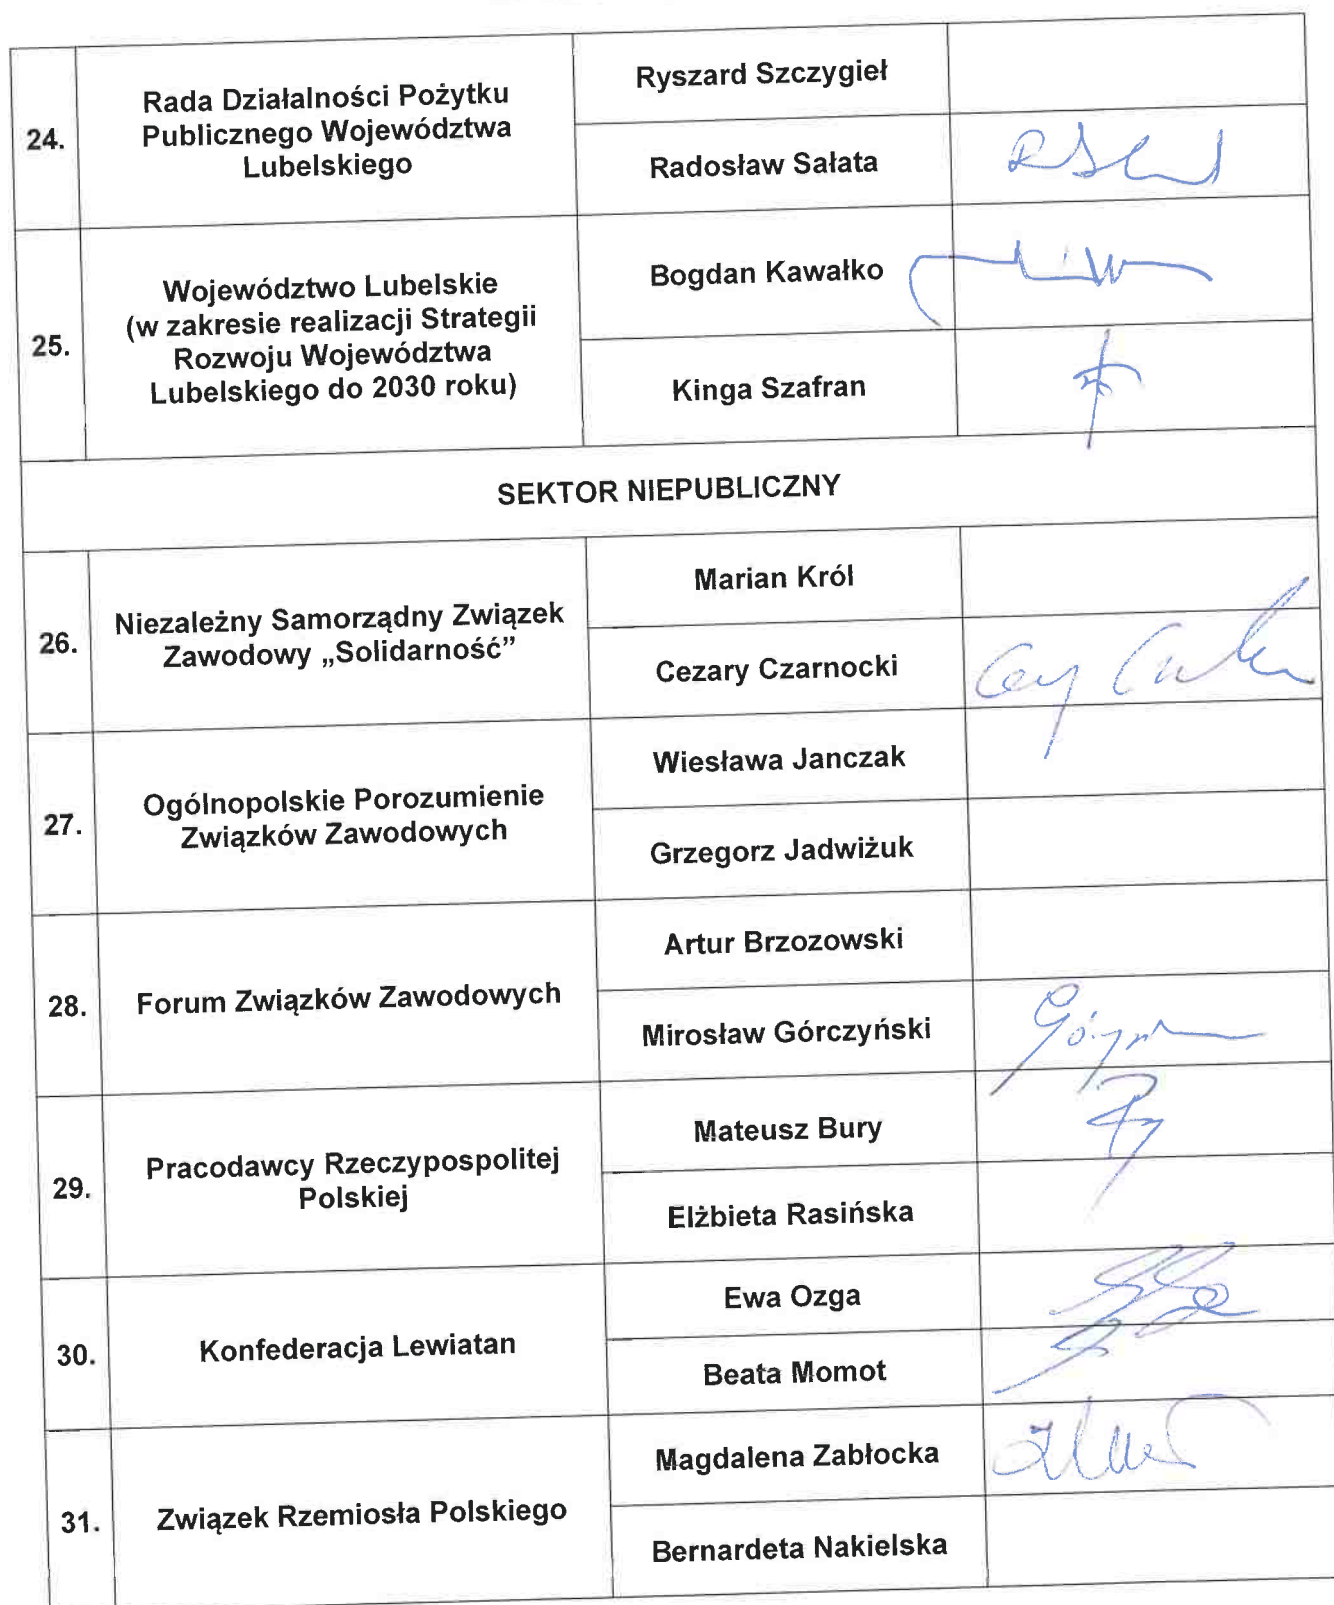 24.
Rada Działalności Pożytku
Publicznego Województwa
Lubelskiego
Ryszard Szczygieł
Radosław Sałata
25.
Województwo Lubelskie
(w zakresie realizacji Strategii
Rozwoju Województwa
Lubelskiego do 2030 roku)
Bogdan Kawałko
Kinga Szafran
SEKTOR NIEPUBLICZNY
26.
Niezależny Samorządny Związek
Zawodowy „Solidarność”
Marian Król
Cezary Czarnocki
27.
Ogólnopolskie Porozumienie
Związków Zawodowych
Wiesława Janczak
Grzegorz Jadwiżuk
28.
Forum Związków Zawodowych
Artur Brzozowski
Mirosław Górczyński
29.
Pracodawcy Rzeczypospolitej
Polskiej
Mateusz Bury
Elżbieta Rasińska
30.
Konfederacja Lewiatan
Ewa Ozga
Beata Momot
31.
Związek Rzemiosła Polskiego
Magdalena Zabłocka
Bernardeta Nakielska